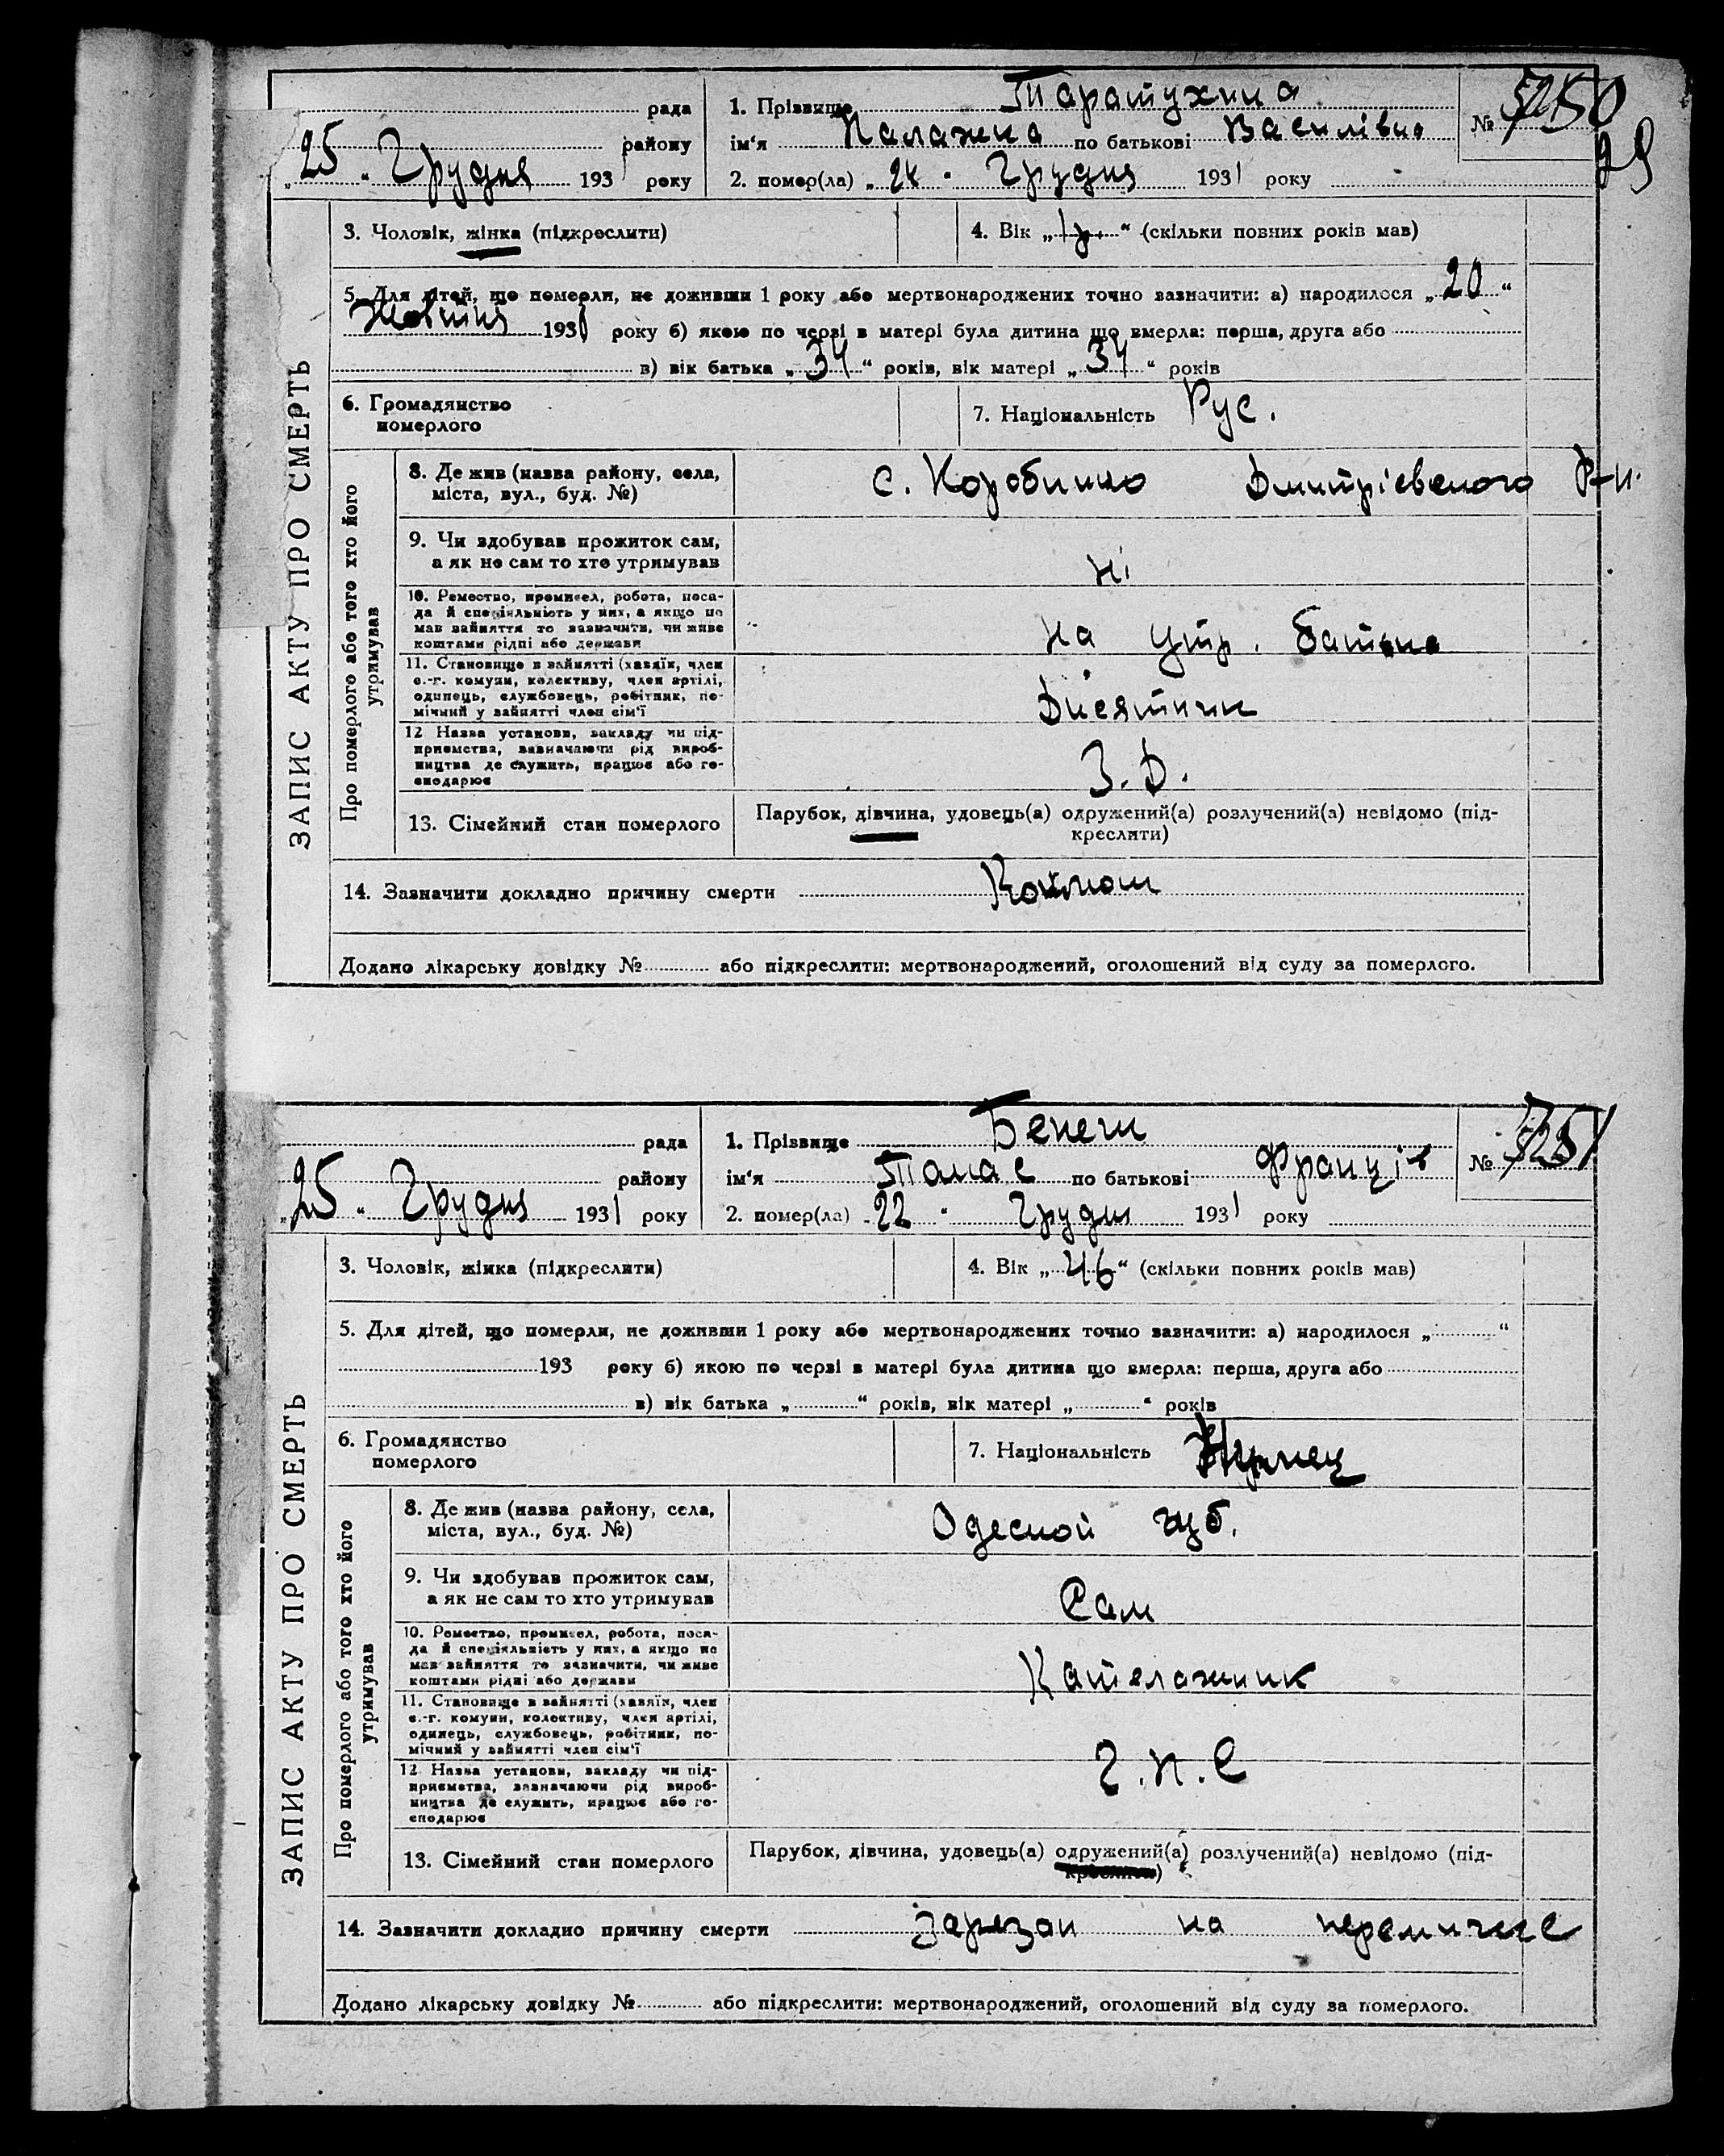 рада 1. Прізвище Таратухина
району ім'я Палажка по батькові Василівна № 
„25“ Грудня 1931 року 2. помер(ла) „24“ Грудня 1931 року
29
ЗАПИС АКТУ ПРО СМЕРТЬ
3. Чоловік, жінка (підкреслити) 4. Вік „ “ (скільки повних років мав)
5. Для дітей, що померли, не доживши 1 року або мертвонароджених точно зазначити: а) народилося „20“
Жовтня 1931 року б) якою по черзі в матері була дитина що вмерла: перша, друга або
в) вік батька „34“ років, вік матері „34“ років
6. Громадянство
померлого
7. Національність Рус.
Про померлого або того хто його
утримував
8. Де жив (назва району, села,
міста, вул., буд. №)
с. Коробкино Дмитрієвского Р-н.
9. Чи здобував прожиток сам,
а як не сам то хто утримував
ні
10. Ремество, промисел, робота, поса-
да й спеціяльність у них, а якщо не
мав зайняття то зазначити, чи живе
коштами рідні або держави
на утр. батька
11. Становище в зайнятті (хазяїн, член
с.-г. комуни, колективу, член артілі,
одинець, службовець, робітник, по-
мічний у зайнятті член сім'ї
Дисятник
12 Назва установи, закладу чи під-
приємства, зазначаючи рід вироб-
ництва де служить, працює або го-
сподарює
З. Д.
13. Сімейний стан померлого
Парубок, дівчина, удовець(а) одружений(а) розлучений(а) невідомо (під-
креслити)
14. Зазначити докладно причину смерти Коклюш
Додано лікарську довідку № або підкреслити: мертвонароджений, оголошений від суду за померлого.
рада 1. Прізвище Бенеш
району ім'я Тамас по батькові Франців № 
„25“ Грудня 1931 року 2. помер(ла) „22“ Грудня 1931 року
ЗАПИС АКТУ ПРО СМЕРТЬ
3. Чоловік, жінка (підкреслити) 4. Вік „46“ (скільки повних років мав)
5. Для дітей, що померли, не доживши 1 року або мертвонароджених точно зазначити: а) народилося „ “
193 року б) якою по черзі в матері була дитина що вмерла: перша, друга або
в) вік батька „ “ років, вік матері „ “ років
6. Громадянство
померлого
7. Національність
Про померлого або того хто його
утримував
8. Де жив (назва району, села,
міста, вул., буд. №)
Одеской губ.
9. Чи здобував прожиток сам,
а як не сам то хто утримував
Сам
10. Ремество, промисел, робота, поса-
да й спеціяльність у них, а якщо не
мав зайняття то зазначити, чи живе
коштами рідні або держави
Кателажник
11. Становище в зайнятті (хазяїн, член
с.-г. комуни, колективу, член артілі,
одинець, службовець, робітник, по-
мічний у зайнятті член сім'ї
12 Назва установи, закладу чи під-
приємства, зазначаючи рід вироб-
ництва де служить, працює або го-
сподарює
13. Сімейний стан померлого
Парубок, дівчина, удовець(а) одружений(а) розлучений(а) невідомо (під-
креслити)
14. Зазначити докладно причину смерти зарезан на перемичке
Додано лікарську довідку № або підкреслити: мертвонароджений, оголошений від суду за померлого.